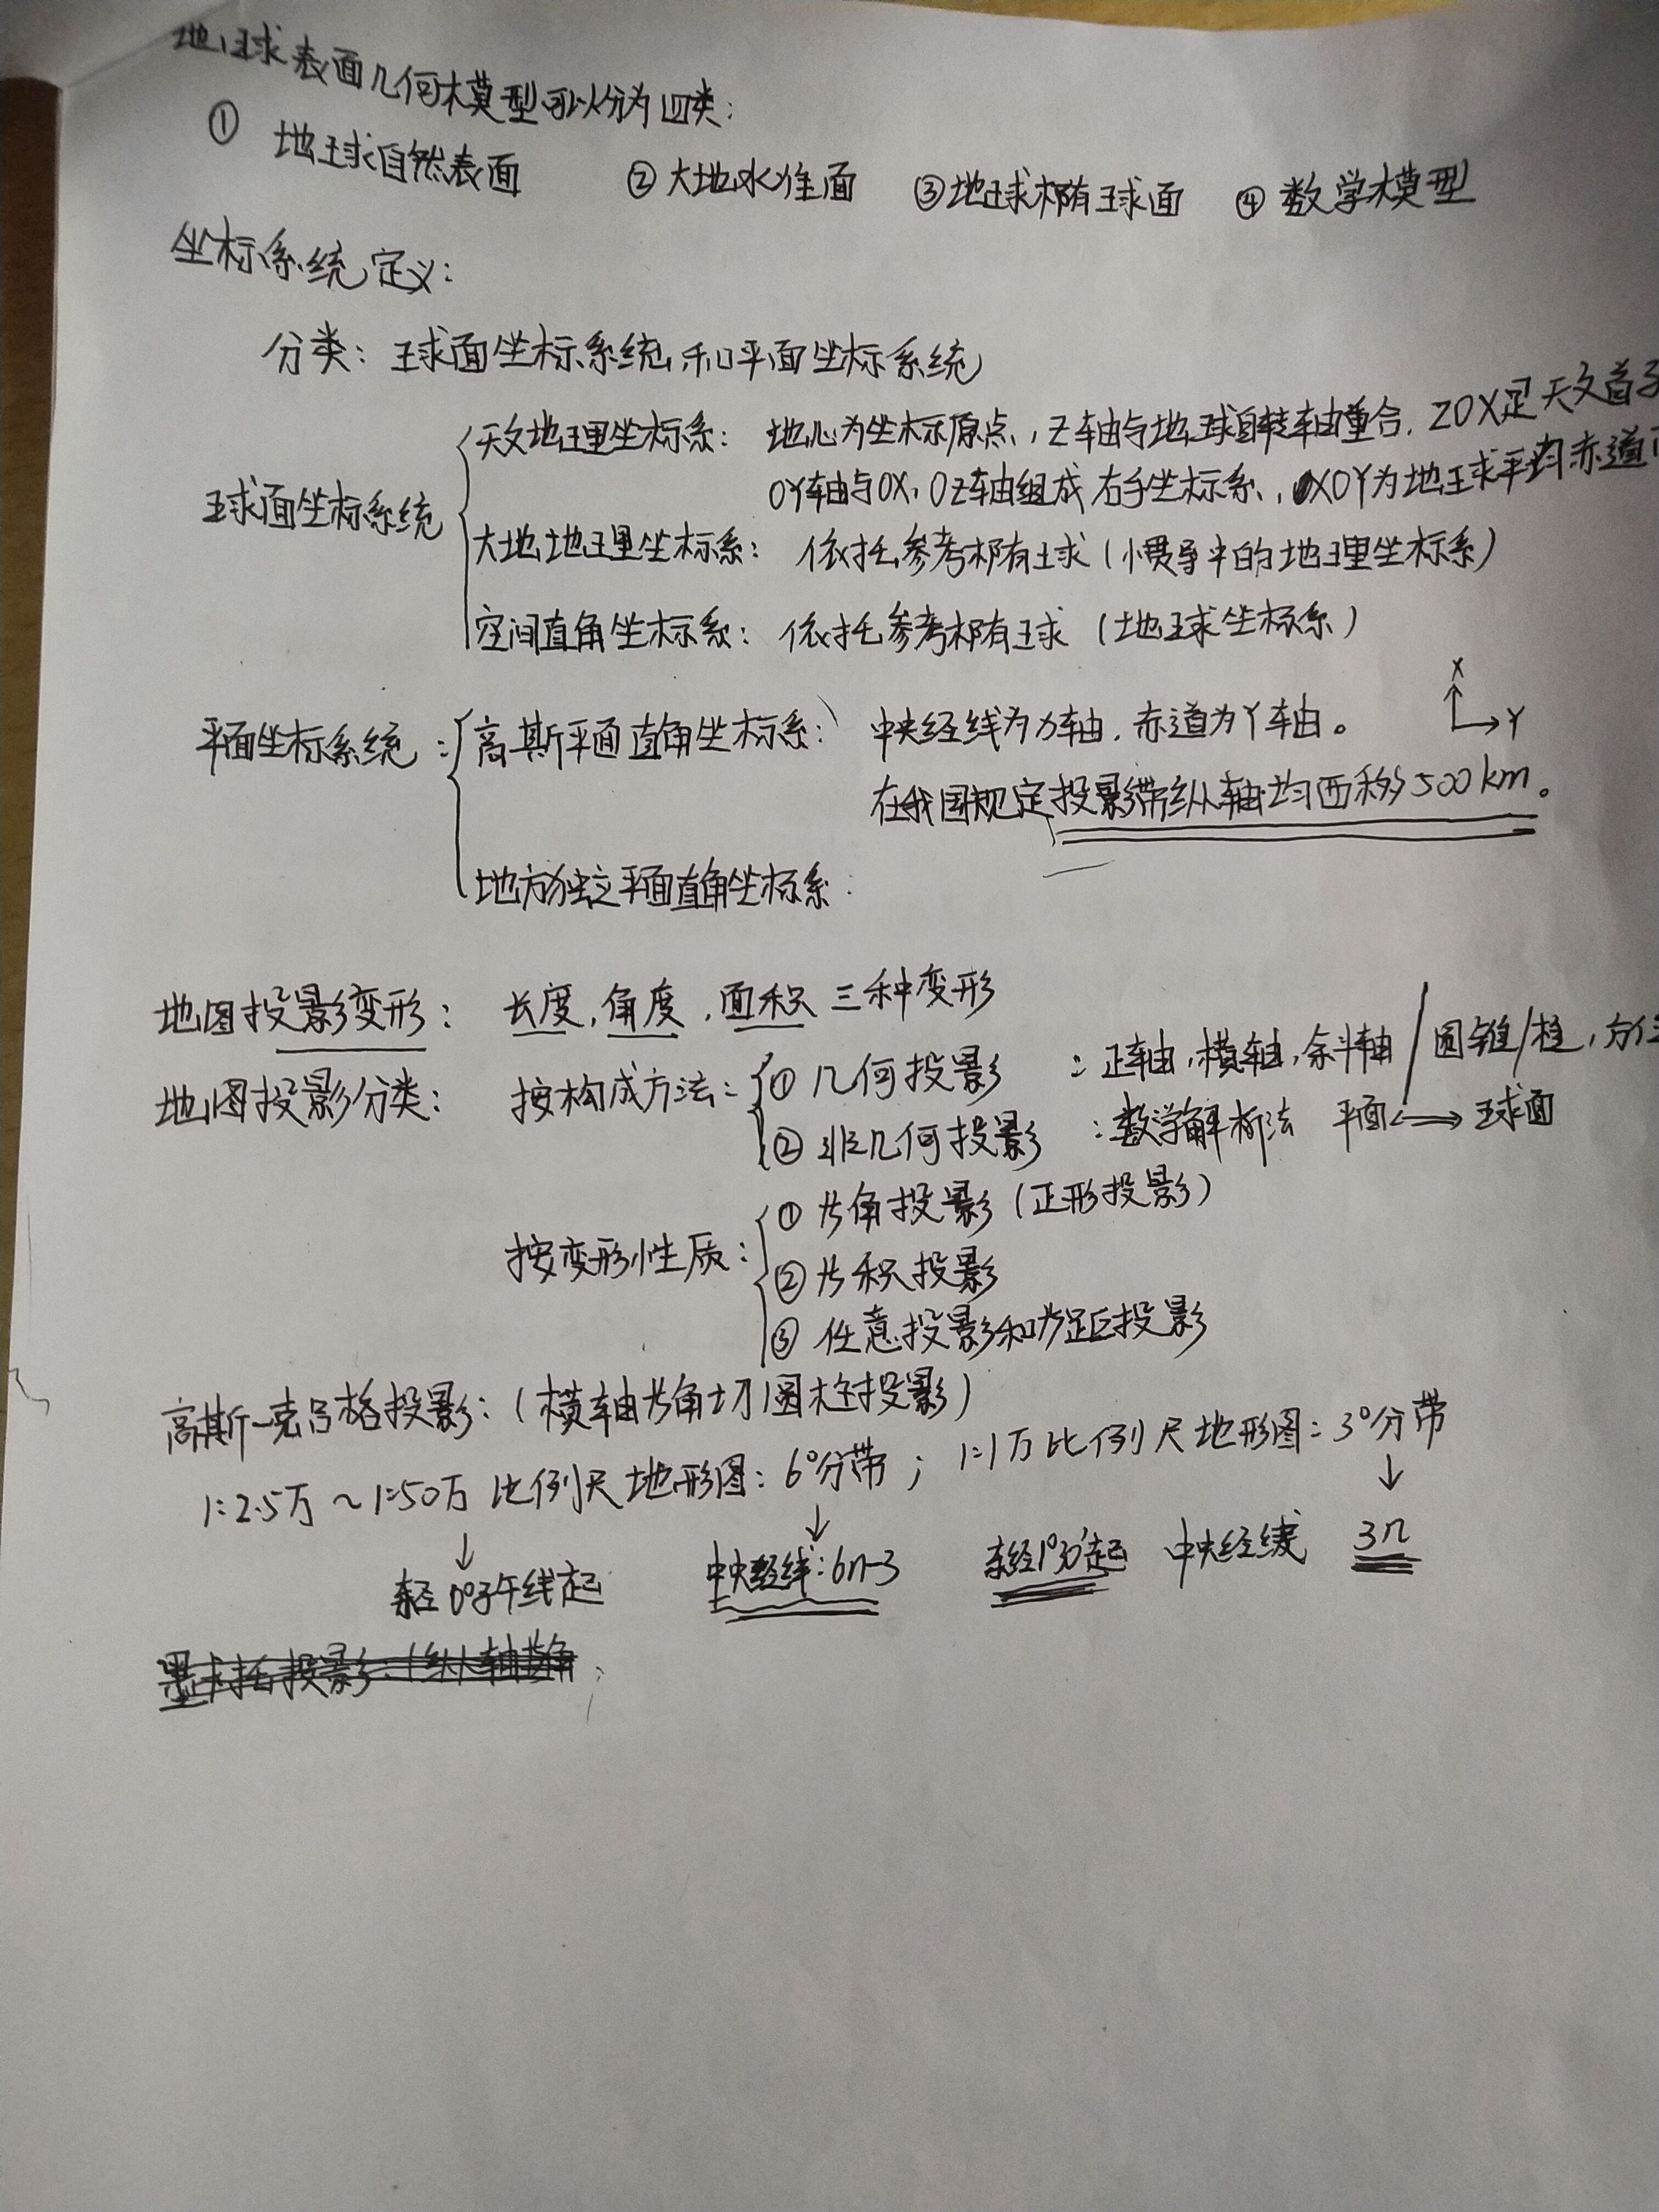 地球表面几何模型可以分为四类：
① 地球自然表面 ② 大地水准面 ③ 地球椭球面 ④ 数学模型
坐标系统定义：
分类：球面坐标系统和平面坐标系统
球面坐标系统
天文地理坐标系：地心为坐标原点，Z轴与地球自转轴重合，ZOX是天文首子
OY轴与OX，OZ轴组成右手坐标系，XOY为地球平均赤道
大地地理坐标系：依托参考椭球（惯导中的地理坐标系）
空间直角坐标系：依托参考椭球（地球坐标系）
平面坐标系统：
高斯平面直角坐标系：中央经线为X轴，赤道为Y轴。 X Y
在我国规定投影带纵轴均西移500km。
地方独立平面直角坐标系：
地图投影变形：长度，角度，面积三种变形
地图投影分类：按构成方法：① 几何投影：正轴，横轴，斜轴/圆锥/柱，方位
② 非几何投影：数学解析法 平面⟺球面
按变形性质：
① 等角投影（正形投影）
② 等积投影
③ 任意投影和等距投影
高斯-克吕格投影：（横轴等角切圆柱投影）
1:2.5万～1:50万比例尺地形图：6°分带；1:1万比例尺地形图：3°分带
↓ ↓ ↓
东经0°子午线起 中央经线：6n-3 东经1°30′起 中央经线 3n